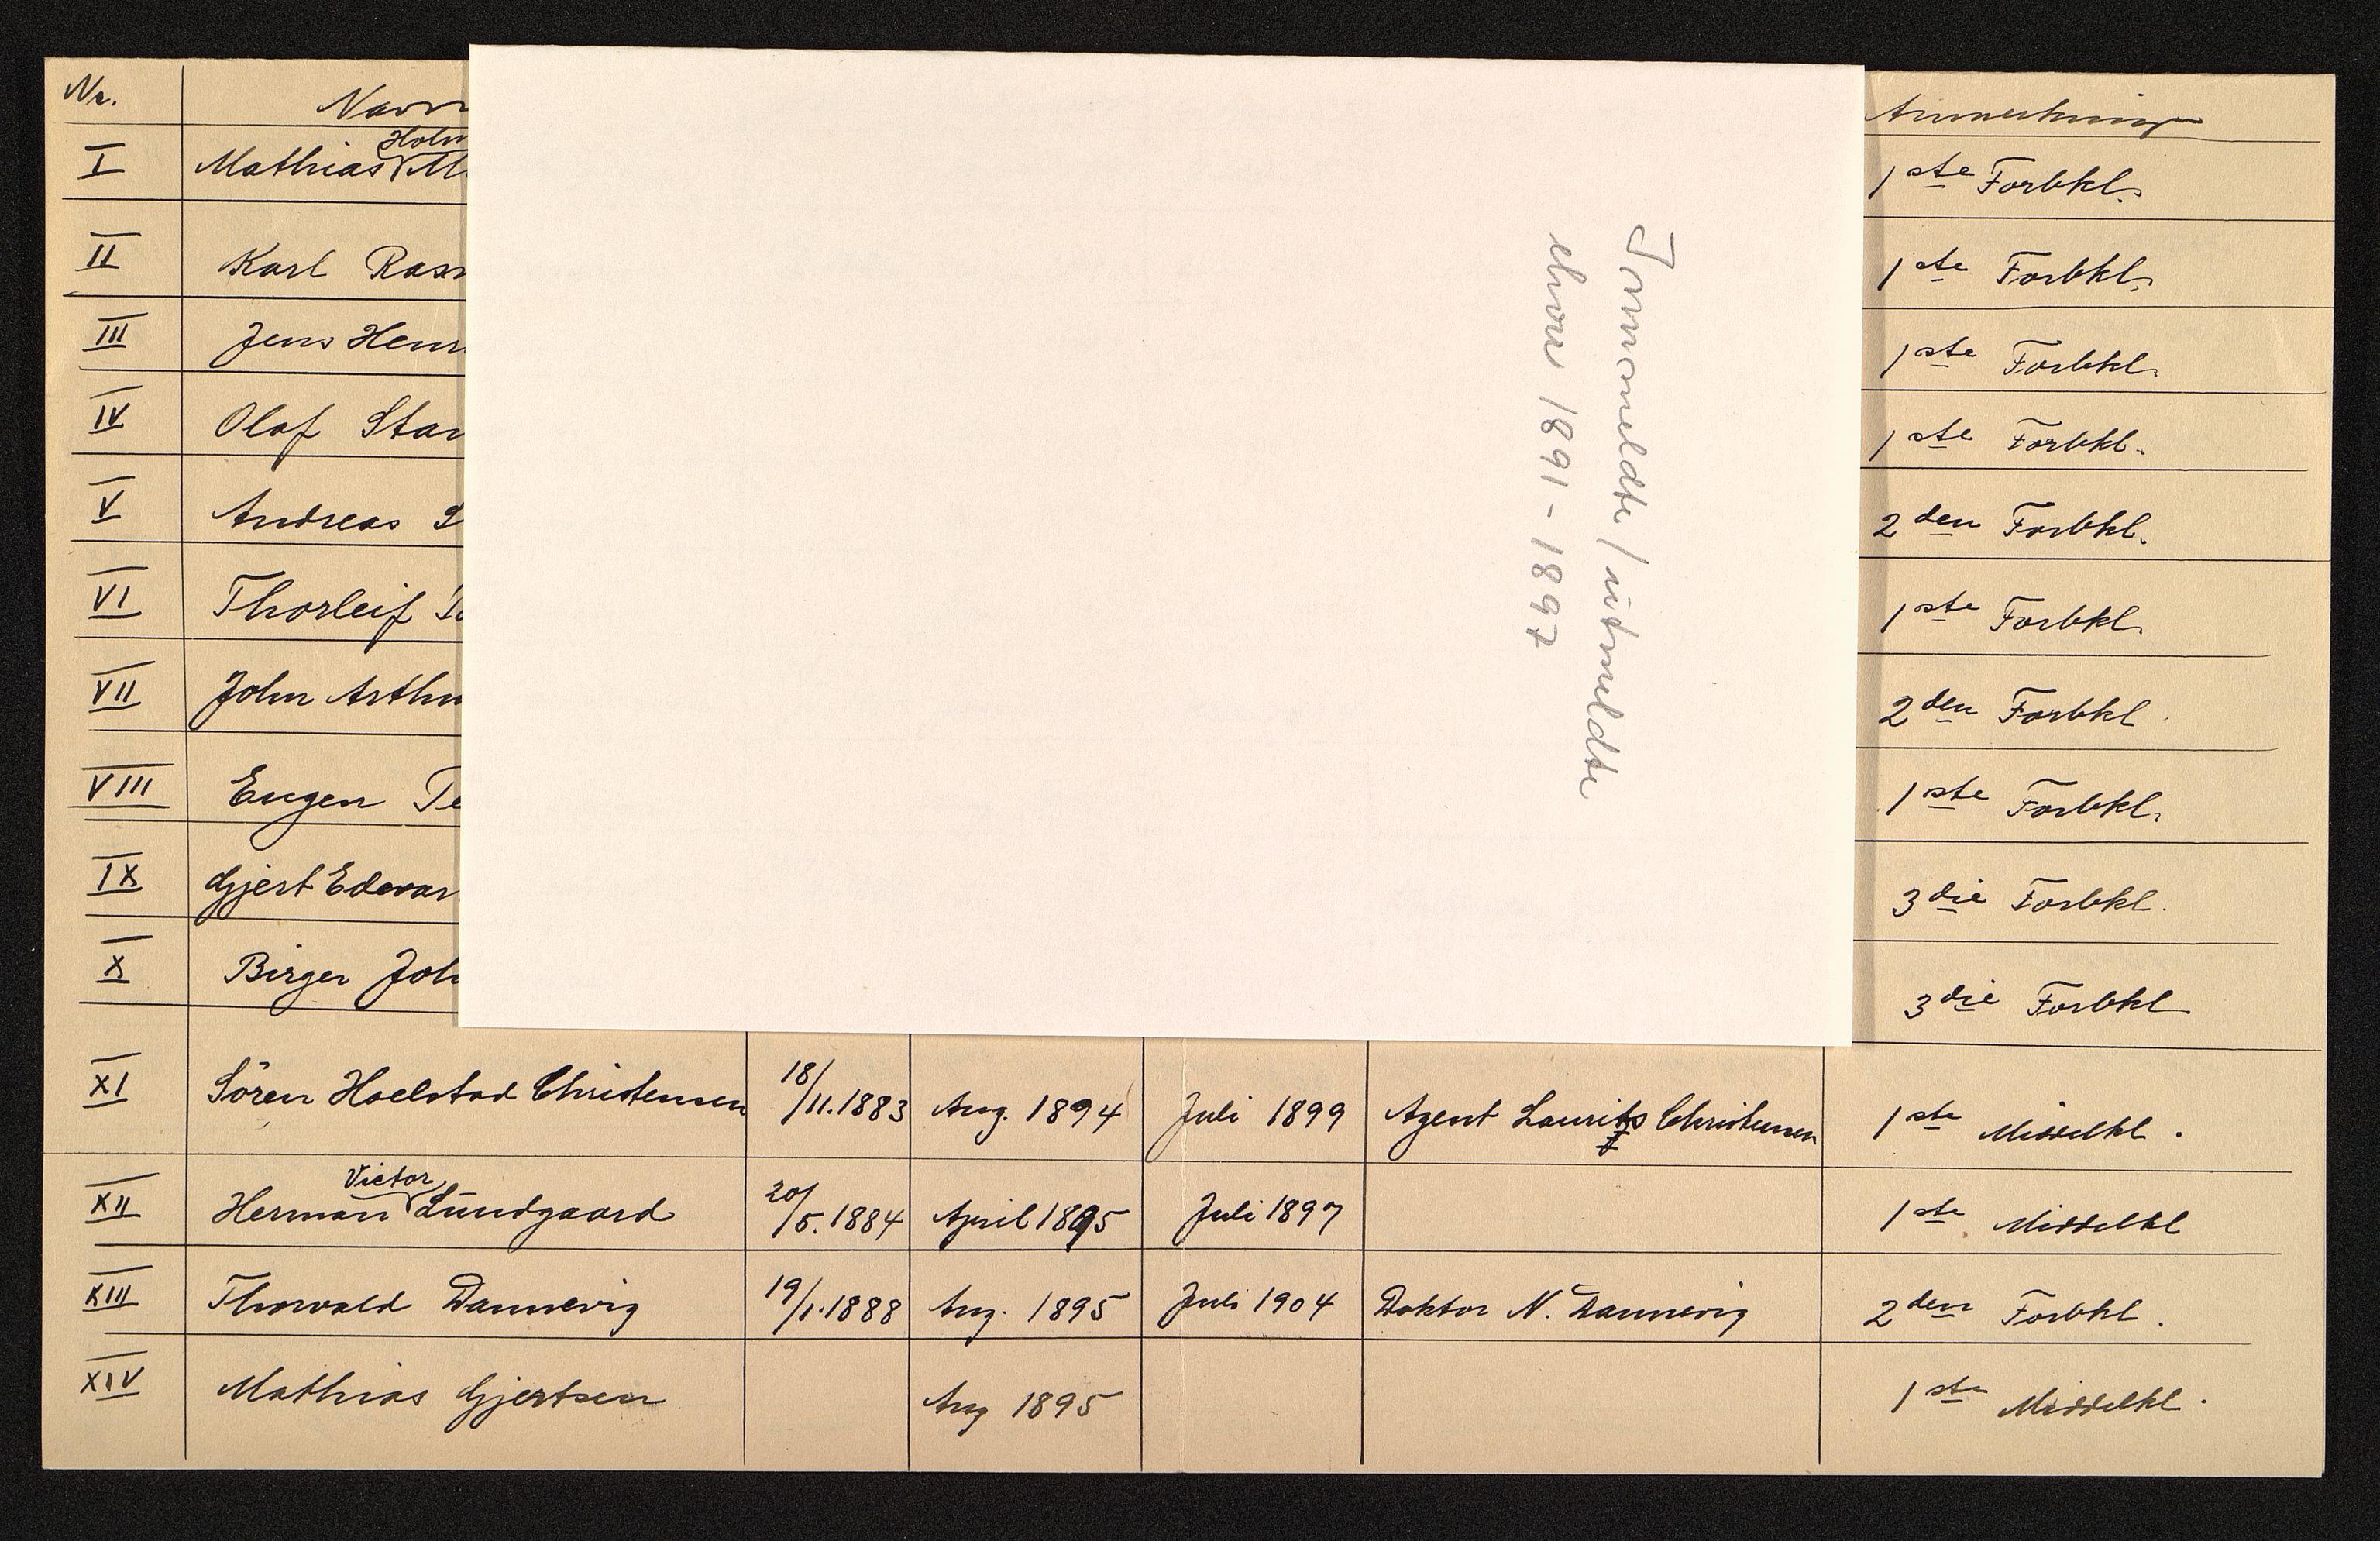 Nr. Navn Anmerkning
Holm
I Mathias M. 1ste Forbkl.
II Karl Rasm 1ste Forbkl.
III Jens Henr 1ste Forbkl.
IV Olaf Stan 1ste Forbkl.
V Andreas S 2den Forbkl.
VI Thorleif 1ste Forbkl.
VII John Arthu 2den Forbkl.
VIII Eugen Te 1ste Forbkl.
IX Gjert Edvar 3die Forbkl.
X Birger Joh 3die Forbkl
Innmeldte / utmeldte
elever 1891-1897
XI Sören Hoelstad Christensen 18/11.1883 Aug. 1894 Juli 1899 Agent Laurits Christensen 1ste Middelkl.
Victor
XII Herman Lundgaard 20/5.1884 April 1895 Juli 1897 1ste Middelkl
XIII Thorvald Dannevig 19/1.1888 Aug. 1895 Juli 1904 Doktor N. Dannevig 2den Forbkl.
XIV Mathias Gjertsen Aug 1895 1ste Middelkl.